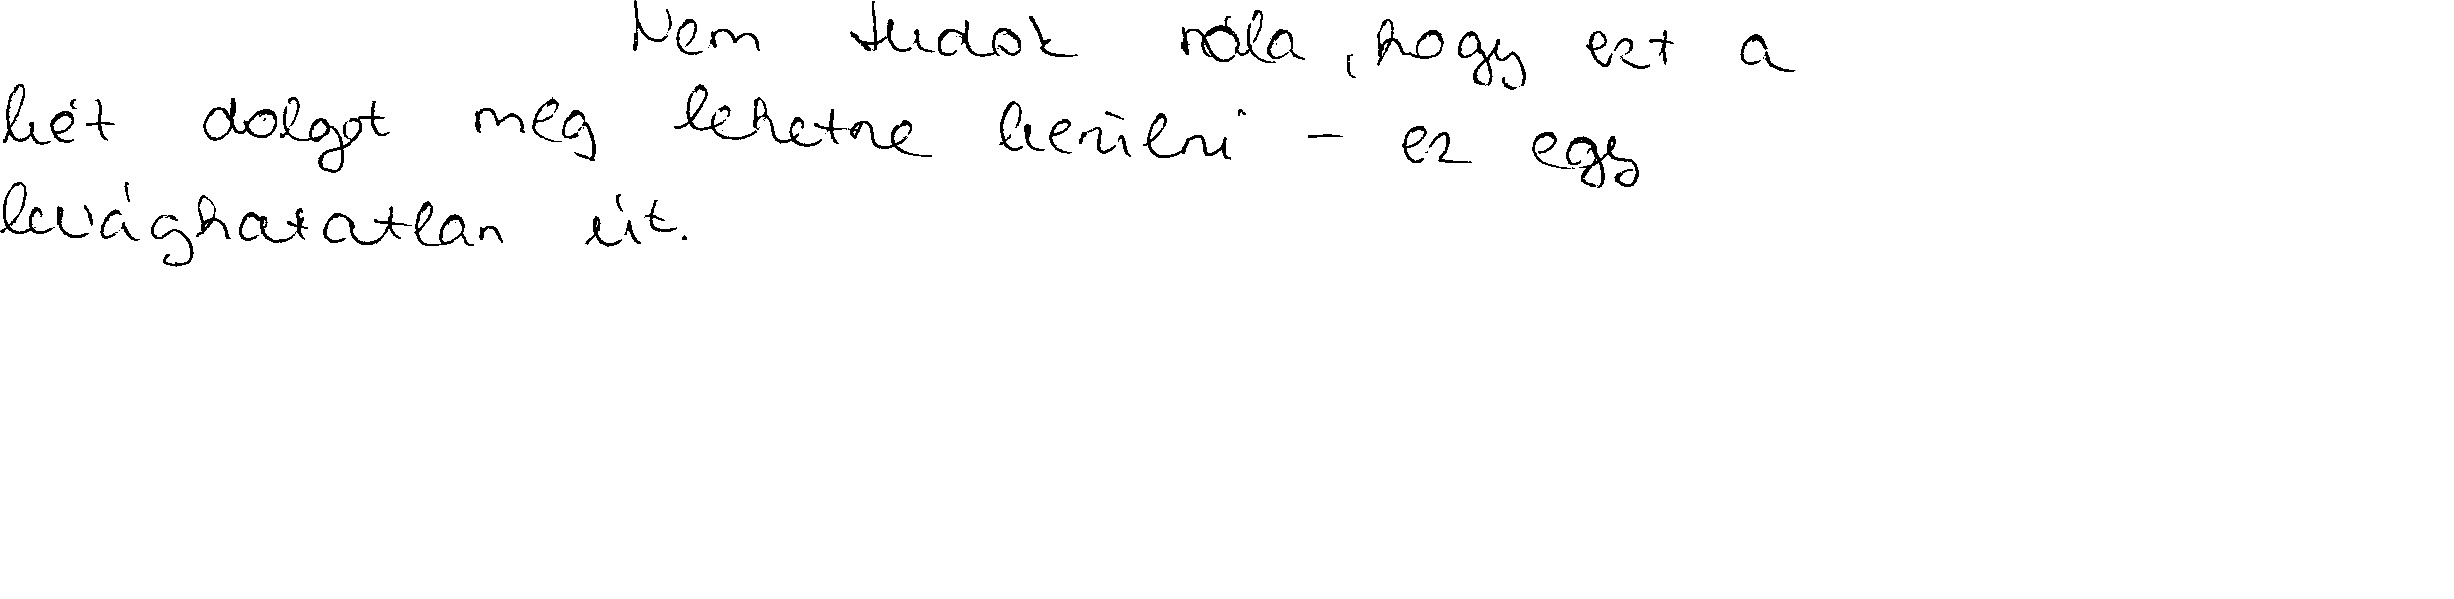 Nem tudok róla, hogy ezt a
két dolgot meg lehetne kerülni - ez egy
levághatatlan út.